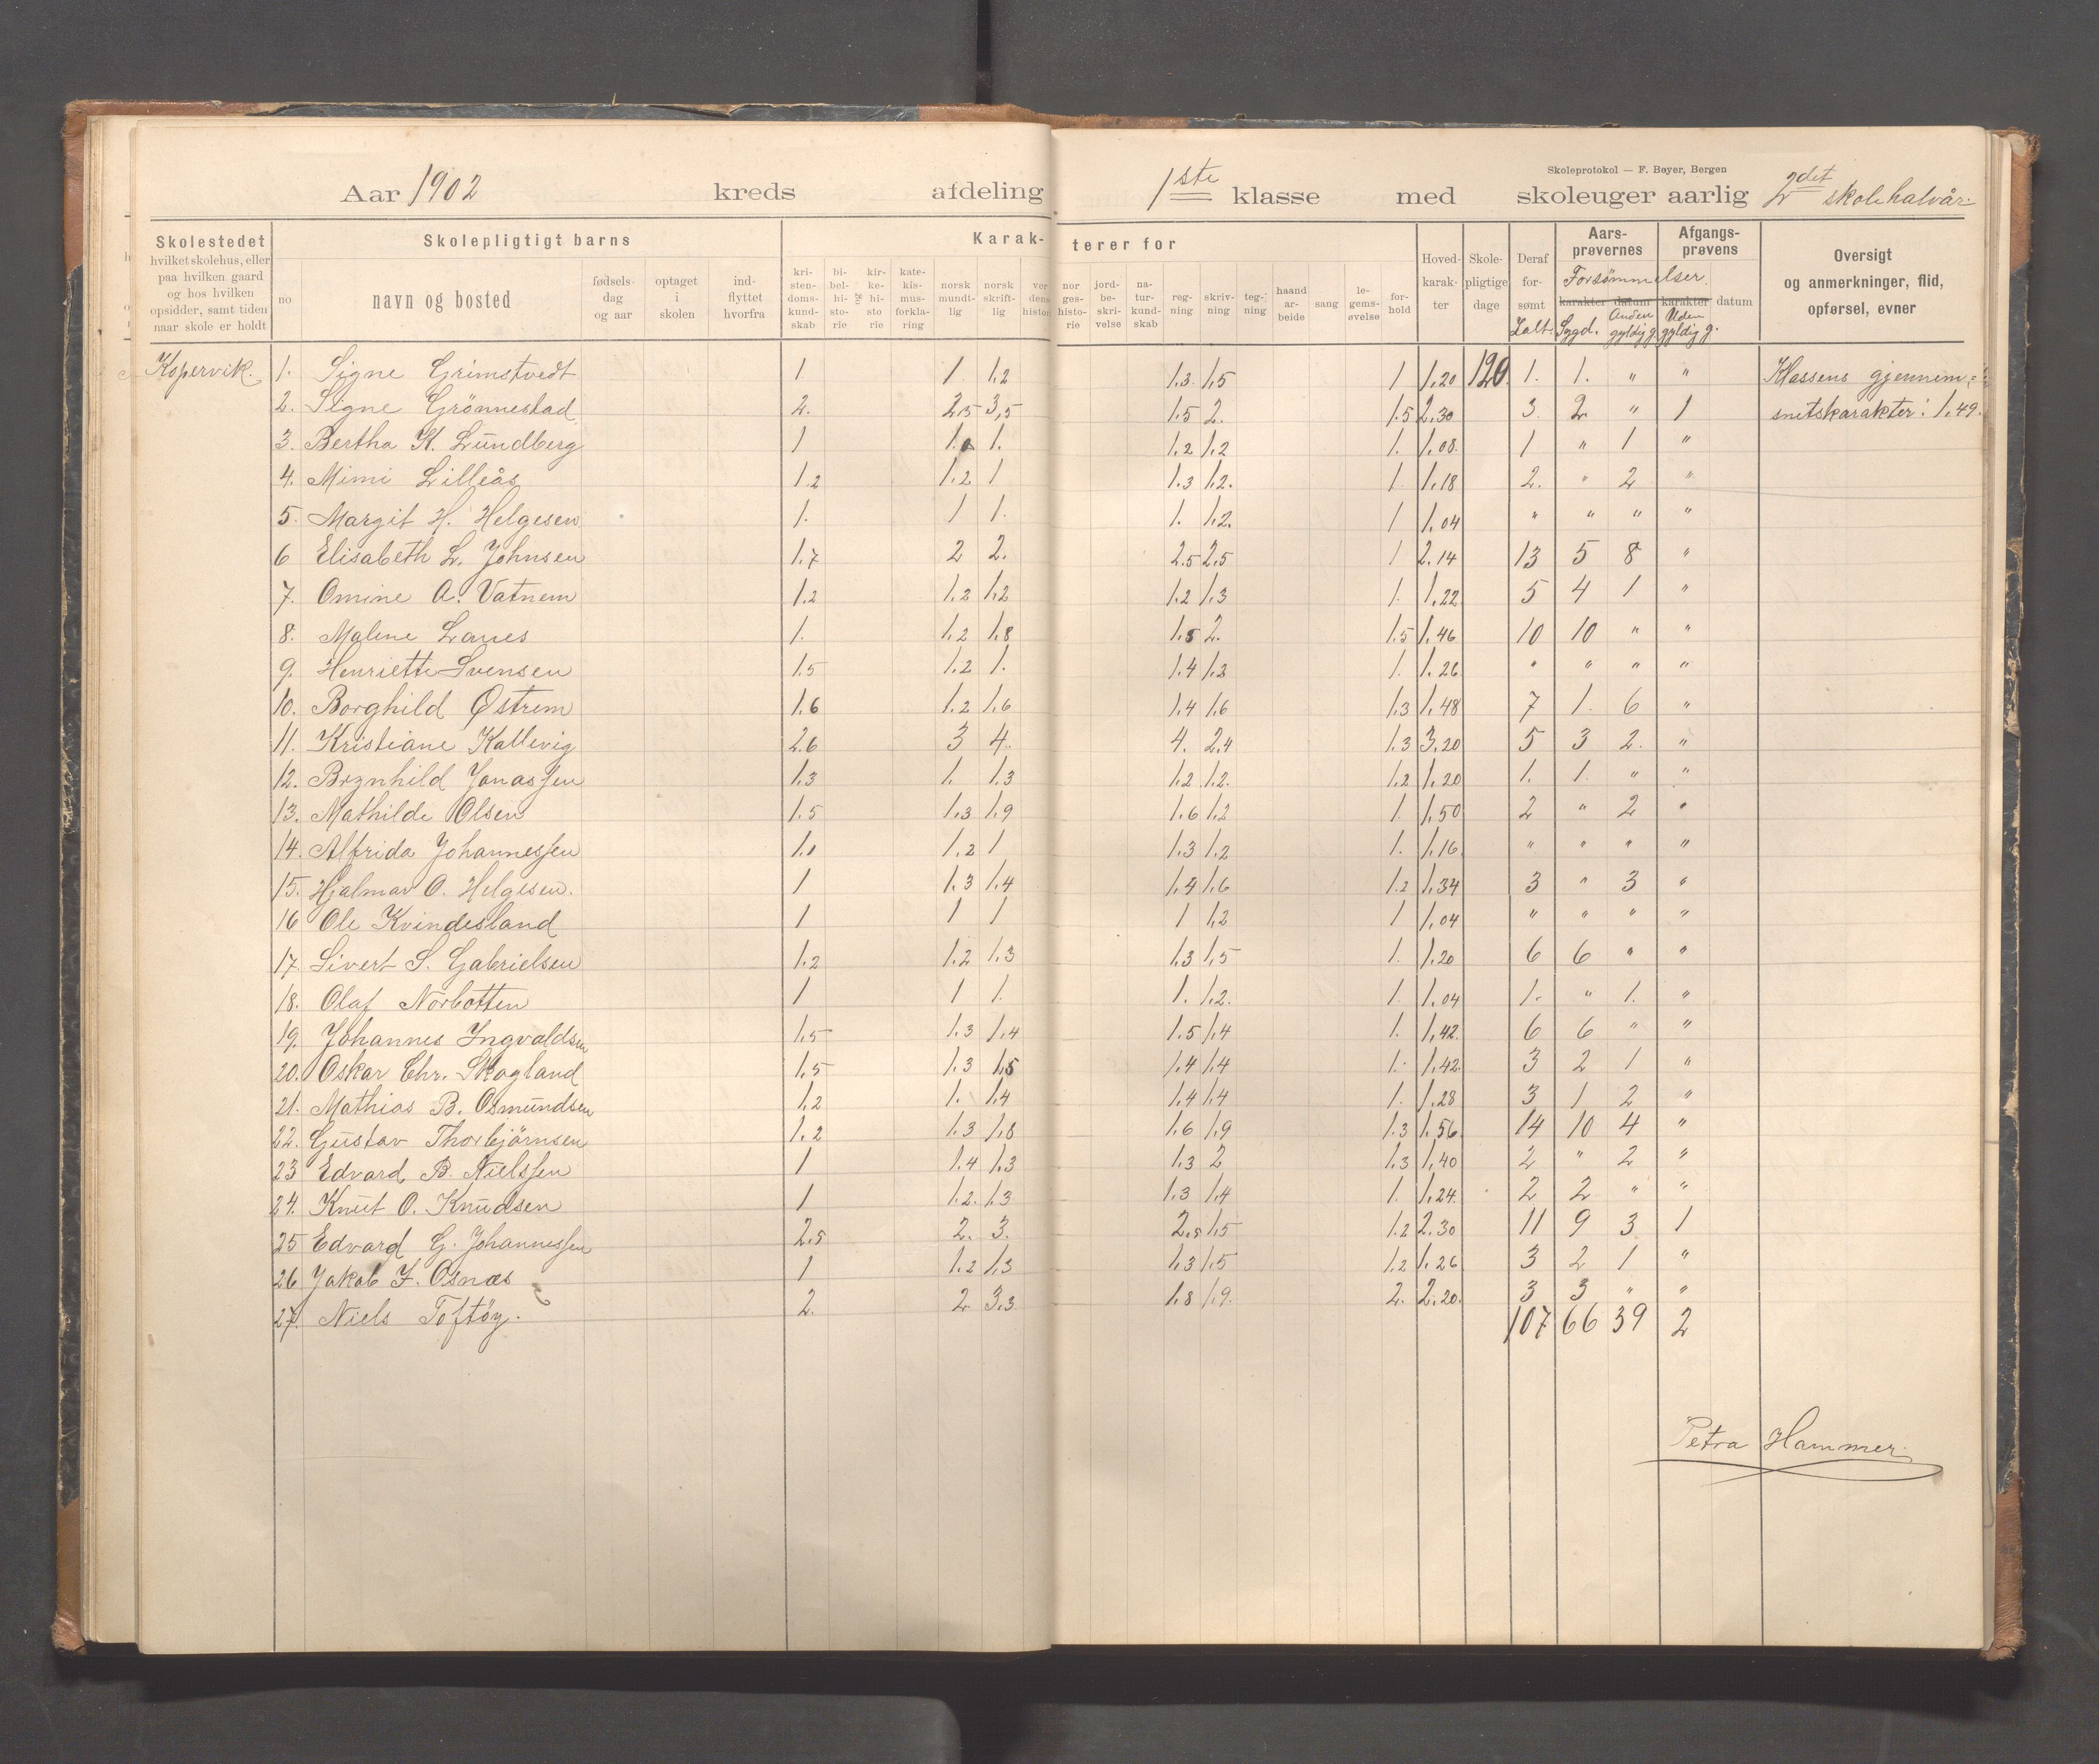 Skoleprotokol — F. Beyer, Bergen
Aar 1902 kreds afdeling 1ste klasse med skoleuger aarlig 2det skolehalvår.
Skolestedet hvilket skolehus, eller paa hvilken gaard og hos hvilken opsidder, samt tiden naar skole er holdt
Skolepligtigt barns
no navn og bosted fødselsdag og aar optaget i skolen indflyttet hvorfra
Karakterer for
kristendomskundskab bibelhistorie kirkehistorie katekismusforklaring norsk mundtlig norsk skriftlig verdenshistor norgeshistorie jordbeskrivelse naturkundskab regning skrivning tegning haandarbeide sang legemsøvelse forhold
Hovedkarakter Skolepligtige dage Deraf forsømt Ialt.
Aarsprøvernes Afgangsprøvens
Forsömmelser.
karakter datum karakter datum
Sygd. Anden gyldig g. Uden gyldig g.
Oversigt og anmerkninger, flid, opførsel, evner
Kopervik. 1. Signe Grimstvedt 1 1 1,2 1.3 1,5 1 1,20 120 1. 1. " " Klassens gjennem=
2. Signe Grönnestad 2. 2,5 3,5 1.5 2. 1.5 2,30 3 2 " 1 snitskarakter: 1,49.
3. Bertha K. Lundberg 1 1. 1. 1.2 1,2 1. 1,08. 1 " 1 "
4. Mimi Lilleås 1.2 1.2 1 1.3 1,2. 1 1,18 2. " 2 "
5. Margit H. Helgesen 1. 1 1. 1. 1,2. 1 1,04 " " " "
6 Elisabeth L. Johnsen 1.7 2 2. 2.5 2,5 1 2.14 13 5 8 "
7. Omine A. Vatnem 1.2 1.2 1,2 1.2 1,3 1. 1,22 5 4 1 "
8. Malene Lanes 1. 1.2 1,8 1.5 2. 1.5 1,46 10 10 " "
9. Henriette Svensen 1.5 1.2 1. 1.4 1,3 1. 1.26 " " " "
10. Borghild Østrem 1.6 1.2 1,6 1.4 1,6 1.3 1,48 7 1. 6 "
11. Kristiane Kallevig 2.6 3 4. 4. 2,4 1.3 3,20 5 3 2. "
12. Brynhild Jonassen 1.3 1. 1.3 1.2 1.2. 1.2 1,20 1. 1. " "
13. Mathilde Olsen 1.5 1.3 1,9 1.6 1,2 1. 1,50 2 " 2 "
14. Alfrida Johannessen 1.1 1.2 1 1.3 1,2 1. 1,16. " " " "
15. Hjalmar O. Helgesen. 1 1.3 1,4 1.4 1,6 1.2 1,34 3 " 3 "
16 Ole Kvindesland 1 1 1 1 1,2 1 1,04 " " " "
17. Sivert S. Gabrielsen 1.2 1.2 1,3 1.3 1,5 1. 1,20 6 6 " "
18. Olaf Norbotten 1 1 1. 1. 1.2. 1. 1,04 1. " 1. "
19. Johannes Ingvaldsen 1.5 1.3 1,4 1.5 1,4 1. 1,42. 6 6 " "
20. Oskar Chr. Skogland 1.5 1.3 1,5 1.4 1,4 1. 1,42. 3 2 1 "
21. Mathias B. Osmundsen 1.2 1. 1,4 1.4 1,4 1. 1,28 3 1 2 "
22. Gustav Thorbjörnsen 1.2 1.3 1,8 1.6 1,9 1.3 1,56 14 10 4 "
23 Edvard B. Nielssen 1 1.4 1,3 1.3 2 1.3 1,40 2 " 2 "
24. Knut O. Knudsen 1 1.2. 1,3 1.3 1,4 1. 1,24. 2 2 " "
25 Edvard G. Johannessen 2.5 2. 3. 2.5 1,5 1.2 2.30 11 9 3 1
26 Jakob F. Osnæs 1 1.2 1,3 1.3 1,5 1.2 1,26 3 2 1 "
27. Niels Toftöy. 2. 2 3,3 1.8 1,9. 2. 2.20. 3 3 " "
107 66 39 2
Petra Hammer.